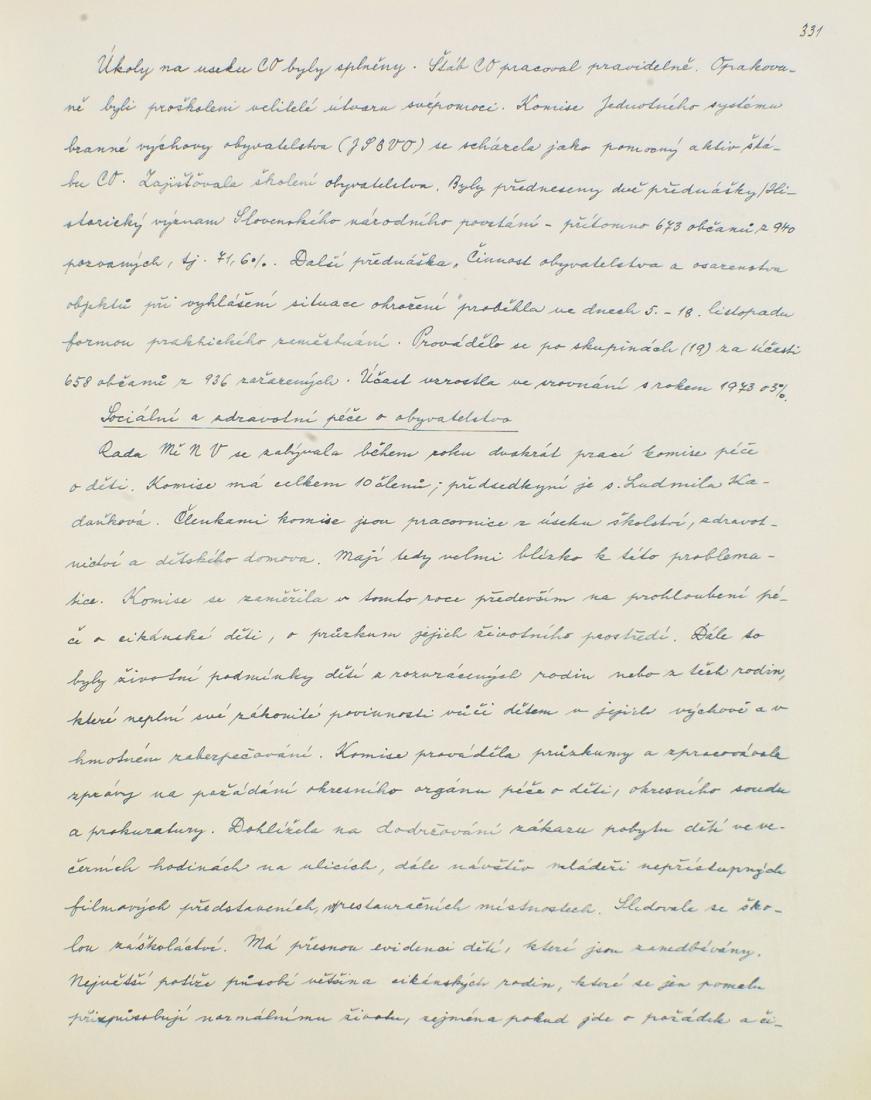 331
Úkoly na useku CO byly splněny. Štáb CO pracoval pravidelně. Opakova-
ně byli proškoleni velitelé útvaru svépomoci. Komise Jednotného systému
branné výchovy obyvatelstva (JSBVO) se scházela jako pomocný aktiv štá-
bu CO. Zajišťovala školení obyvatelstva. Byly předneseny dvě přednášky/Hi-
storický význam Slovenského národního povstání - přítomno 673 občanů z 940
pozvaných, tj. 71,6%. Další přednáška „Činnost obyvatelstva a osazenstva
objektů při vyhlášení situace ohrožení" proběhla ve dnech 5. - 18. listopadu
formou praktického zaměstnání. Provádělo se po skupinách (19) za účasti
658 občanů z 936 zařazených. Účast vzrostla ve srovnání s rokem 1973 o 3%.
Sociální a zdravotní péče o obyvatelstvo
Rada MěNV se zabývala během roku dvakrát prací komise péče
o děti. Komise má celkem 10 členů; předsedkyní je s. Ludmila Ka-
daňková. Členkami komise jsou pracovnice z úseku školství, zdravot-
nictví a dětského domova. Mají tedy velmi blízko k této problema-
tice. Komise se zaměřila v tomto roce především na prohloubení pé-
če o cikánské děti, o průzkum jejich životního prostředí. Dále to
byly životní podmínky dětí z rozvrácených rodin nebo z těch rodin,
které neplní své zákonité povinnosti vůči dětem v jejich výchově a v
hmotném zabezpečování. Komise prováděla průzkumy a zpracovávala
zprávy na požádání okresního orgánu péče o děti, okresního soudu
a prokuratury. Dohlížela na dodržování zákazu pobytu dětí ve ve-
černích hodinách na ulicích, dále návštěv mládeži nepřístupných
filmových představeních, v restauračních místnostech. Sledovala se ško-
lou záškoláctví. Má přesnou evidenci dětí, které jsou zanedbávány.
Největší potíže působí většina cikánských rodin, které se jen pomalu
přizpůsobují normálnímu životu, zejména pokud jde o pořádek a či-